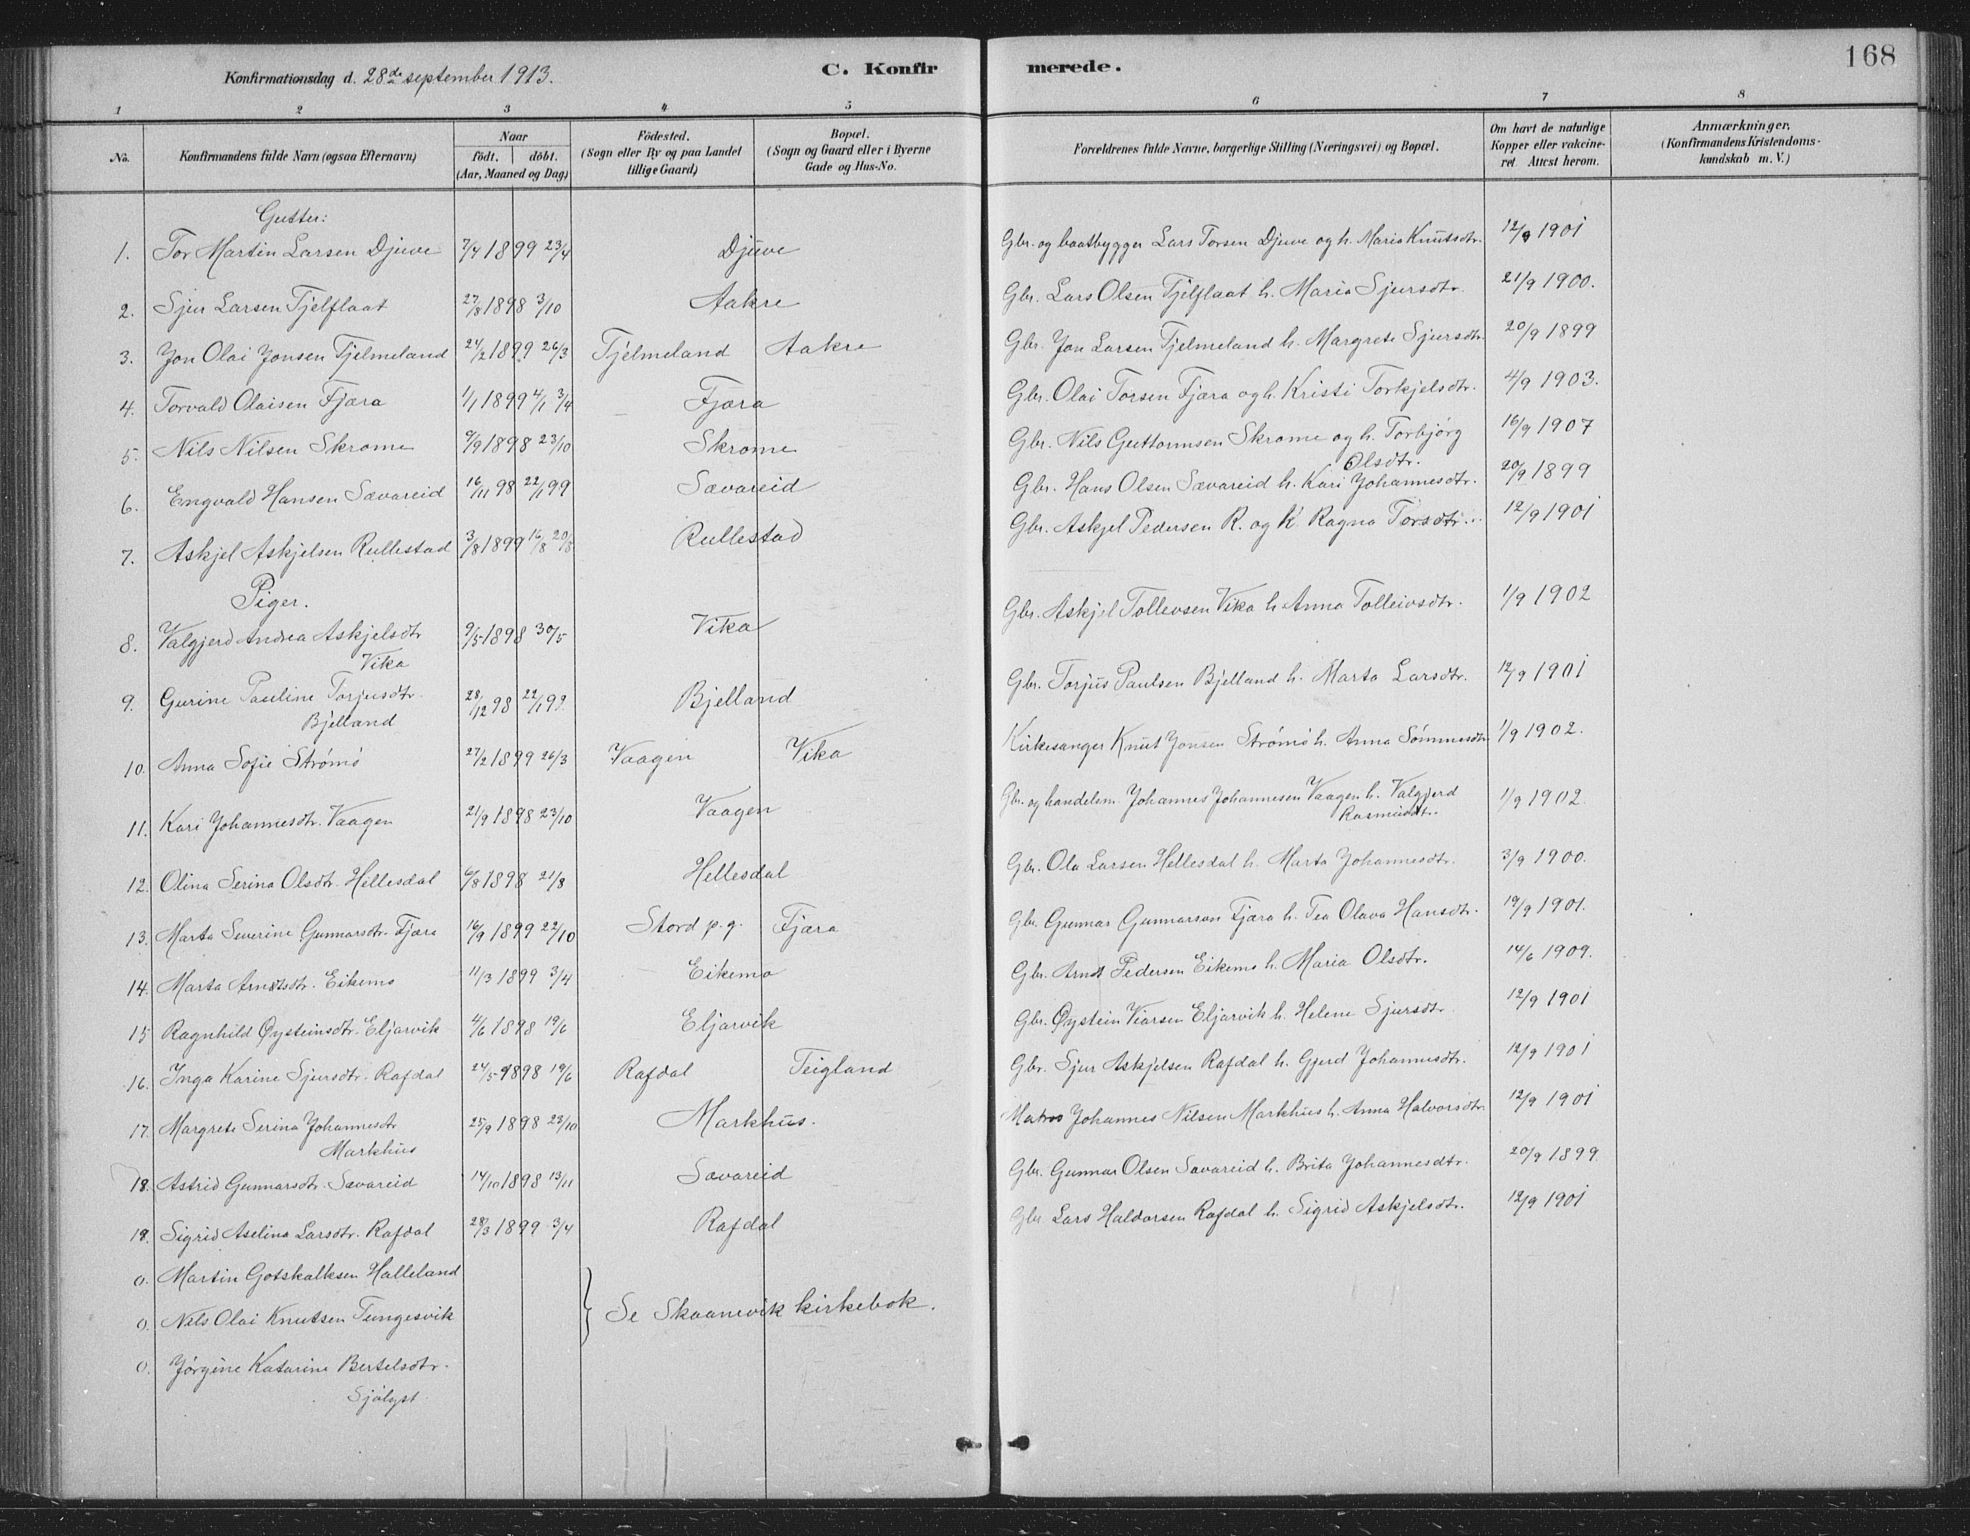 168
Konfirmationsdag d. 28de september 1913. C. Konfirmerede.
1 2 3 4 5 6 7 8
No. Konfirmandens fulde Navn (ogsaa Efternavn) Naar födt. döbt. (Aar, Maaned og Dag) Födested. (Sogn eller By og paa Landet tillige Gaard) Bopæl. (Sogn og Gaard eller i Byerne Gade og Hus-No. Forældrenes fulde Navne, borgerlige Stilling (Næringsvei) og Bopæl. Om havt de naturlige Kopper eller vakcineret. Attest herom. Anmærkninger. (Konfirmandens Kristendomskundskab m. V.)
Gutter:
1. Tor Martin Larsen Djuve 7/4 1899 23/4 Djuve Gbr. og baatbygger Lars Torsen Djuve og h. Maria Knutsdtr. 12/9 1901
2. Sjur Larsen Tjelflaat 27/8 1898 3/10 Aakre Gbr. Lars Olsen Tjelflaat h. Maria Sjursdtr. 21/9 1900.
3. Jon Olai Jonsen Tjelmeland 24/2 1899 26/3 Tjelmeland Aakre Gbr. Jon Larsen Tjelmeland h. Margrete Sjursdtr. 20/9 1899
4. Torvald Olaisen Fjæra 1/1 1899 4/1 3/4 Fjæra Gbr. Olai Torsen Fjæra og h. Kristi Torkjelsdtr. 4/9 1903.
5. Nils Nilsen Skromme 9/9 1898 23/10 Skromme Gbr. Nils Guttormsen Skromme og h. Torbjörg Olsdtr. 16/9 1907
6. Engvald Hansen Sævareid 16/11 98 22/1 99 Sævareid Gbr. Hans Olsen Sævareid h. Kari Johannesdtr. 20/9 1899
7. Askjel Askjelsen Rullestad 3/8 1899 16/8 20/8 Rullestad Gbr. Askjel Pedersen R. og K. Ragna Torsdtr. 12/9 1901
Piger.
8. Valgjerd Andrea Askjelsdtr Vika 9/5 1898 30/5 Vika Gbr. Askjel Tollevsen Vika h. Anna Tolleivsdtr. 1/9 1902
9. Gurine Pauline Torjusdtr. Bjelland 28/12 98 22/1 99. Bjelland Gbr. Torjus Paulsen Bjelland h. Marta Larsdtr. 12/9 1901
10. Anna Sofie Strømö 27/2 1899 26/3 Vaagen Vika Kirkesanger Knut Jonsen Strømö h. Anna Sömmesdtr 1/9 1902.
11. Kari Johannesdtr. Vaagen 21/9 1898 23/10 Vaagen Gbr. og handelsm. Johannes Johannesen Vaagen h. Valgjerd Rasmusdtr. 1/9 1902
12. Olina Serina Olsdtr. Hellesdal 6/8 1898 21/8 Hellesdal Gbr. Ola Larsen Hellesdal h. Marta Johannesdtr. 3/9 1900.
13. Marta Severine Gunnarsdtr. Fjæra 16/9 1899 22/10 Stord p.g. Fjæra Gbr. Gunnar Gunnarson Fjæra h. Tea Olava Hansdtr. 19/9 1901.
14. Marta Arndtsdtr. Eikemo 11/3 1899 3/4 Eikemo Gbr. Arndt Pedersen Eikemo h. Maria Olsdtr. 14/6 1909.
15 Ragnhild Øysteinsdtr. Eljarvik 4/6 1898 19/6 Eljarvik Gbr. Øystein Viarsen Eljarvik h. Helene Sjursdtr 12/9 1901
16. Inga Karine Sjursdtr. Rafdal 24/5 1898 19/6 Rafdal Teigland Gbr. Sjur Askjelsen Rafdal h. Gjerd Johannesdtr. 12/9 1901
17. Margrete Serina Johannesdtr Markhus 25/9 1898 23/10 Markhus. Matros Johannes Nilsen Markhus h. Anna Halvorsdtr. 12/9 1901
18. Astrid Gunnarsdtr. Sævareid 14/10 1898 13/11 Sævareid Gbr. Gunnar Olsen Sævareid h. Brita Johannesdtr. 20/9 1899.
19. Sigrid Aselina Larsdtr. Rafdal 28/3 1899 3/4 Rafdal Gbr Lars Haldorsen Rafdal h. Sigrid Askjelsdtr. 12/9 1901
0. Martin Gotskalksen Halleland
0. Nils Olai Knutsen Tungesvik Se Skaanevik kirkebok.
0. Jörgine Katarine Bertelsdtr. Sjölyst.